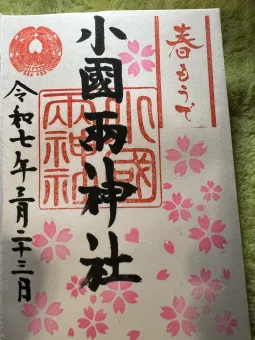 春もうで
小國両神社
小國両神社
令和七年三月二十三日